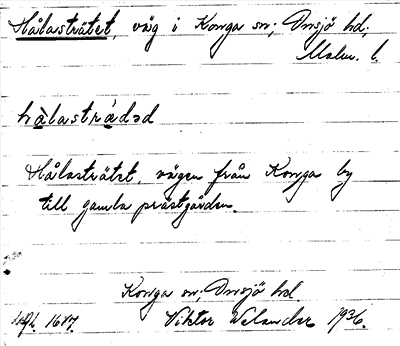 Hålasträtet, väg i Konga sn; Onsjö hd;
Malm. l.
hàlastrádəd
Hålasträtet, vägen från Konga by
till gamla prästgården.
Konga sn; Onsjö hd.
1647. Viktor Welander 1936.